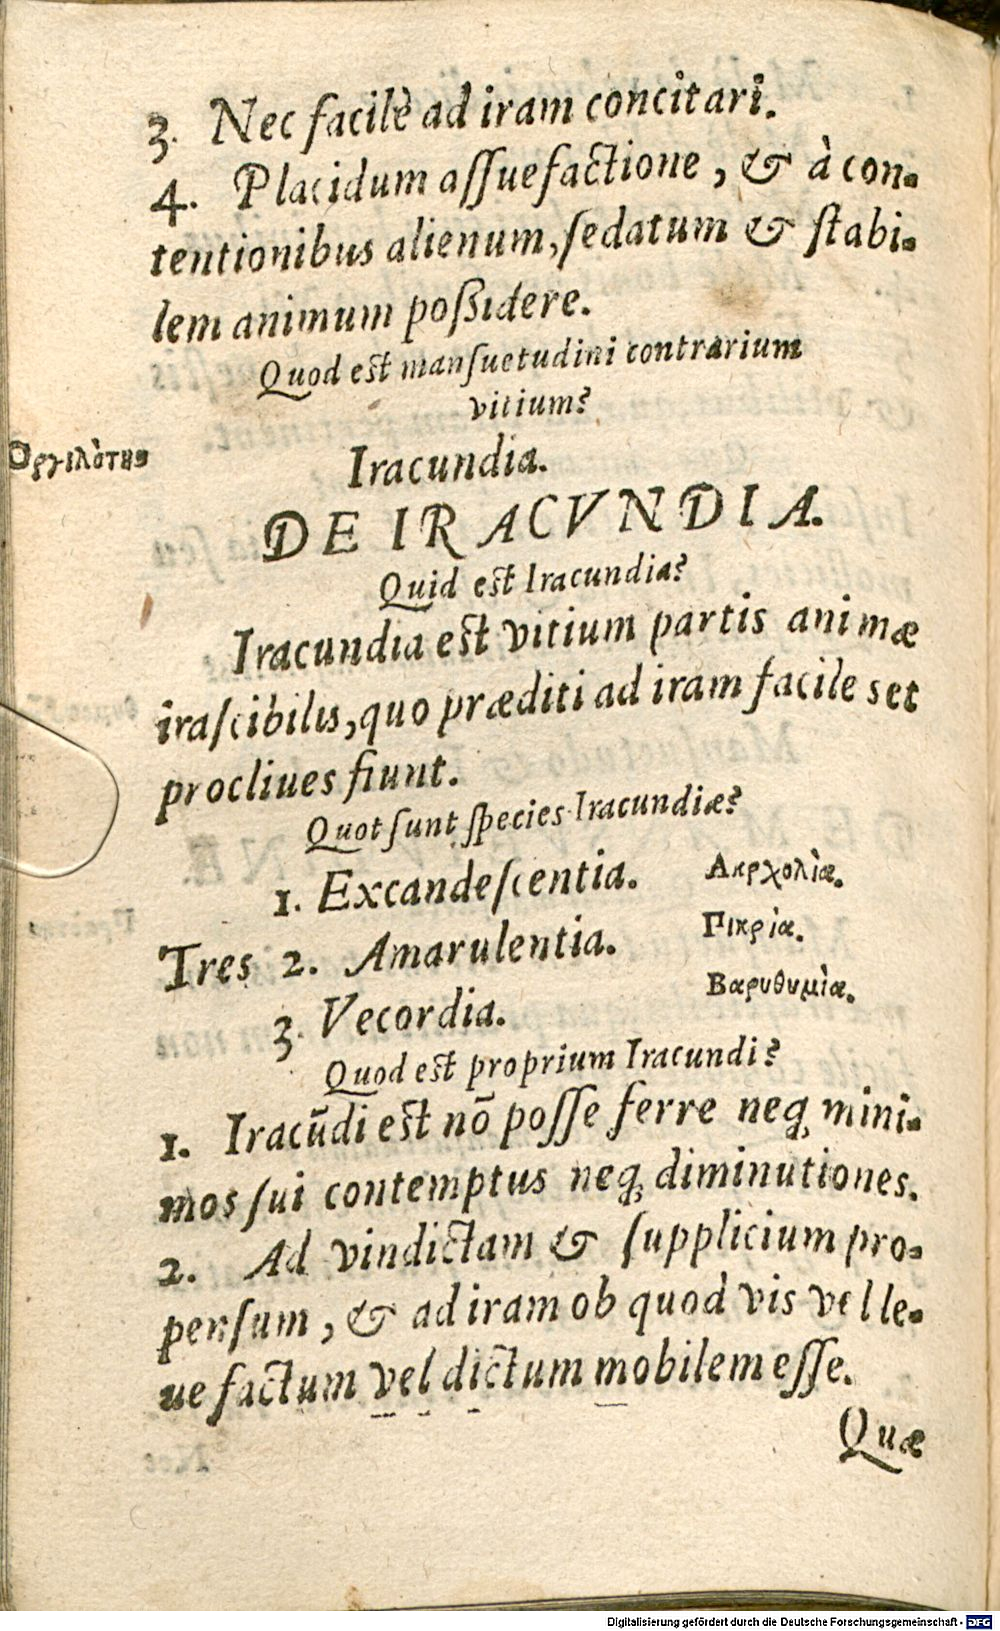 3. Nec facilè ad iram concitari.
4. Placidum aſſuefactione, & à con-
tentionibus alienum, ſedatum & ſtabi-
lem animum poßidere.
Quod eſt manſuetudini contrarium
vitium?
Οργιλὸτης
Iracundia.
DE IRACVNDIA.
Quid eſt Iracundia?
Iracundia eſt vitium partis animæ
iraſcibilis, quo præditi ad iram facile set
procliues fiunt.
Quot ſunt ſpecies Iracundiæ?
1. Excandeſcentia. Ακρχολὶα.
Tres 2. Amarulentia. Πικρὶα.
3. Vecordia. Βαρυθυμὶα.
Quod eſt proprium Iracundi?
1. Iracūdi eſt nō poſſe ferre neq́; mini-
mos ſui contemptus neq́; diminutiones.
2. Ad vindictam & ſupplicium pro-
penſum, & ad iram ob quod vis vel le-
ue factum vel dictum mobilem eſſe.
Quæ
Digitalisierung gefördert durch die Deutsche Forschungsgemeinschaft - DFG